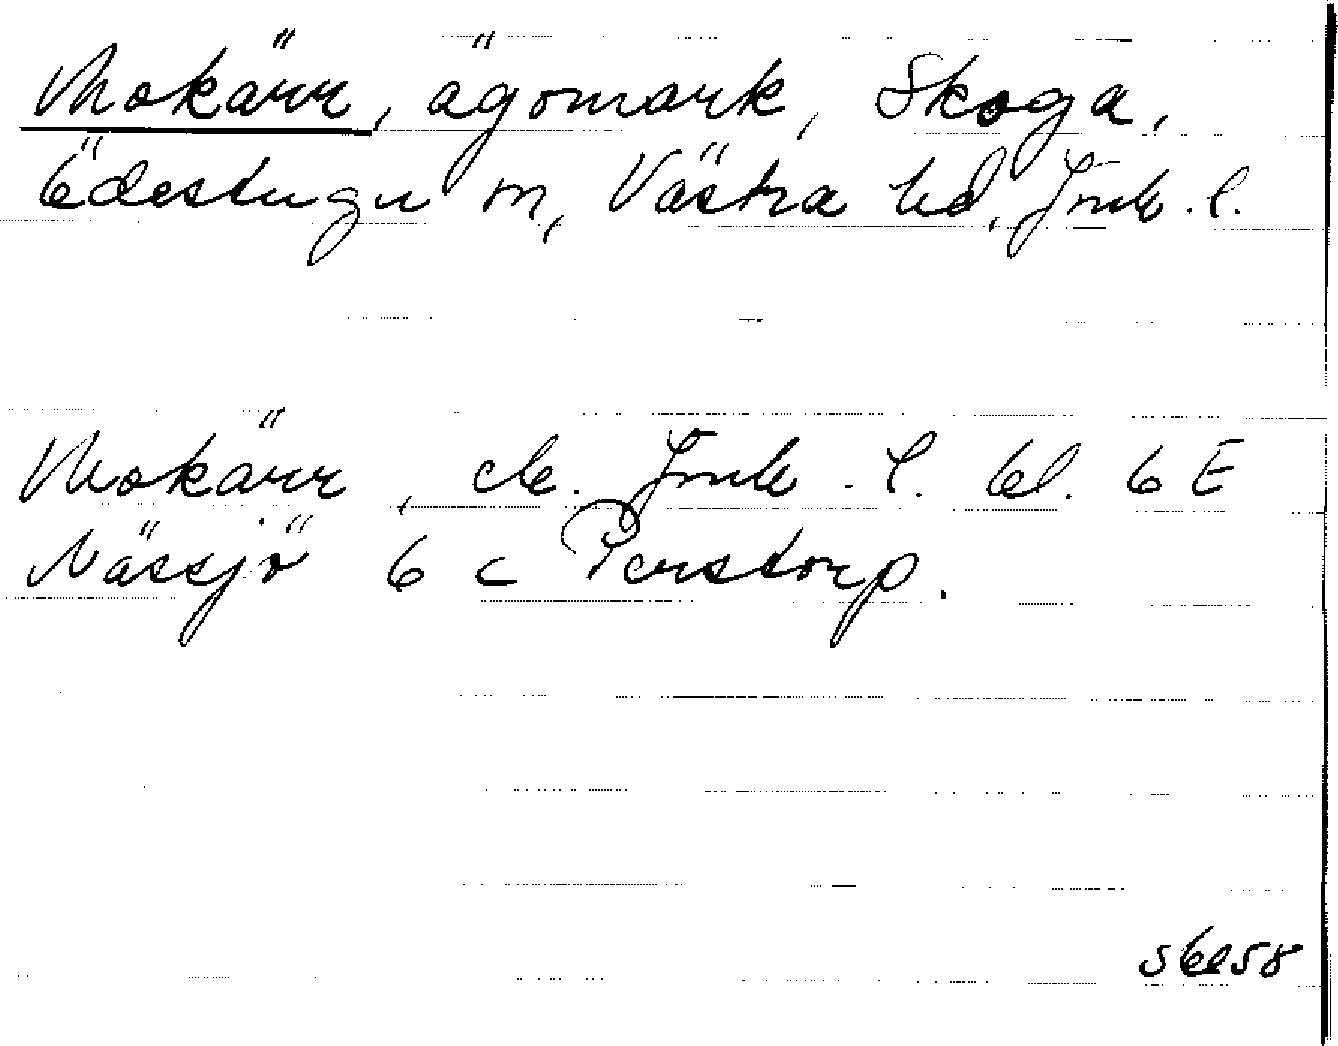 Mokärr, ägomark, Skoga,
Ödestugu sn, Västra hd, Jmk. l.
Mokärr, ek. Jmk. l. bl. 6 E
Nässjö 6 c Perstorp.